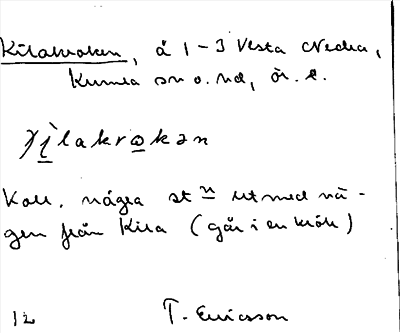 Kilakroken, å 1-3 Vesta Nedra,
Kumla sn o. hd, ör. l.
kɩ̀lakrokən
Koll. några st n ut med vä-
gen från Kila (går i en krok)
12 T. Ericsson